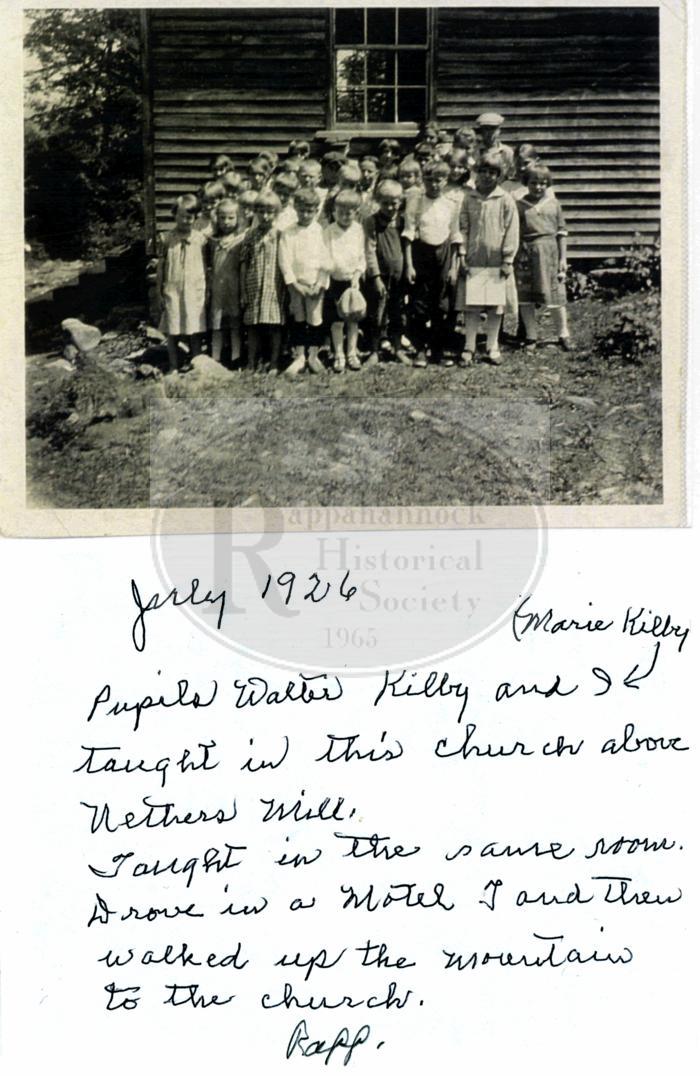 Rappahannock
Historical
Society
1965
July 1926
(Marie Kilby
Pupils Walter Kilby and I
taught in this church above
Nethers Mill.
Taught in the same room.
Drove in a Motel T and then
walked up the mountain
to the church.
Rapp.